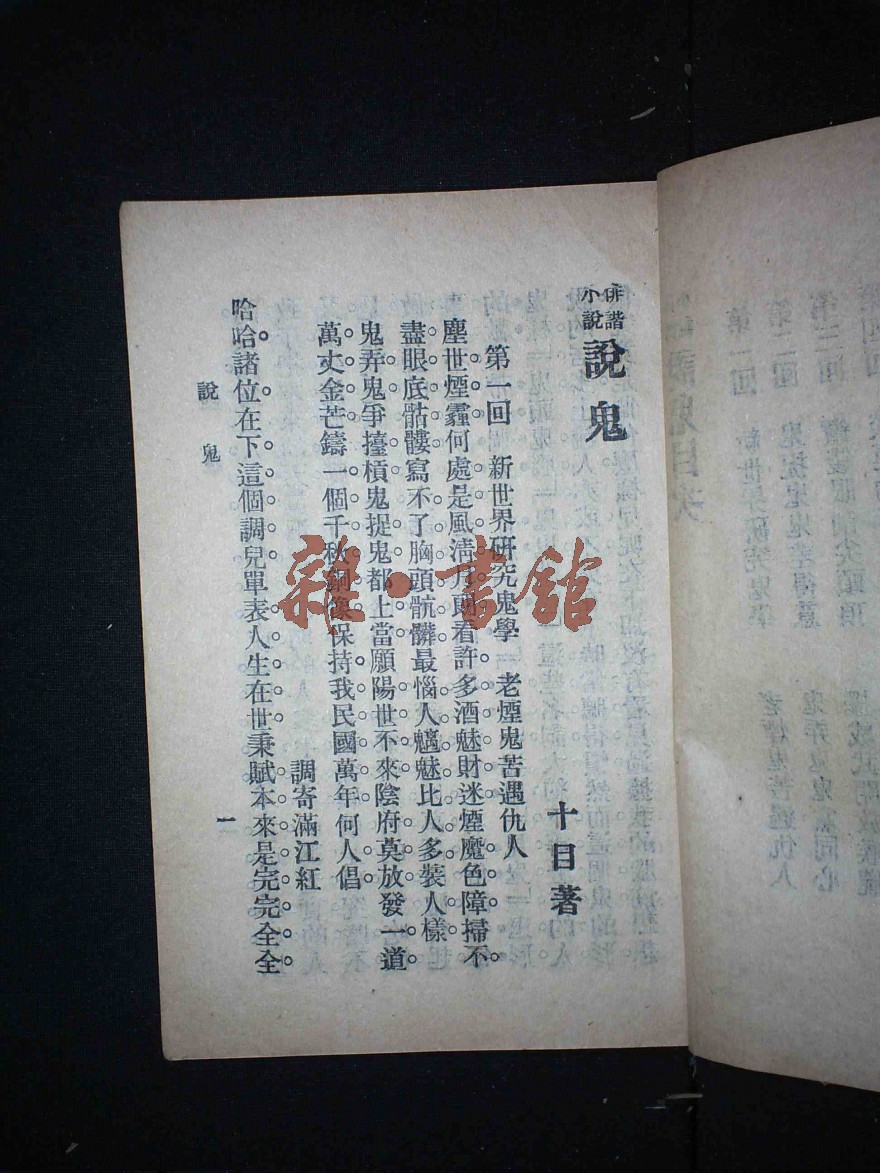 俳諧
小說
說鬼
十目著
第一回　新世界研究鬼學　老煙鬼苦遇仇人
塵世煙霾何處是風清月朗看許多酒魅財迷煙魔色障掃不
盡眼底骷髏寫不了胸頭骯髒最惱人魑魅比人多裝人樣
鬼弄鬼爭擡槓鬼捉鬼都上當願陽世不來陰府莫放發一道
萬丈金芒鑄一個千秋銅像保持我民國萬年何人倡
調寄滿江紅
哈哈諸位在下這個調兒單表人生在世秉賦本來是完完全全
說鬼
一
雜·書館